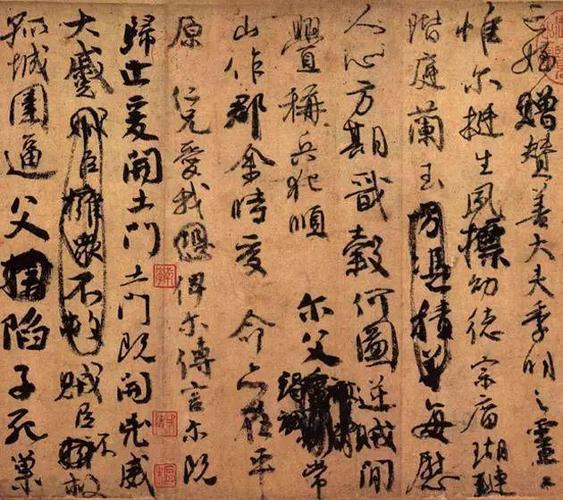 姪贈贊善大夫季明之靈曰
惟爾挺生夙標幼德宗廟瑚璉
階庭蘭玉方憑積善每慰
人心方期戩穀何圖逆賊間
釁稱兵犯順 爾父竭誠常
山作郡余時受命亦在平
原仁兄愛我恐俾爾傳言爾既
歸止爰開土門土門既開凶威
大蹙賊臣擁眾不救賊臣不救
孤城圍逼父陷子死巢